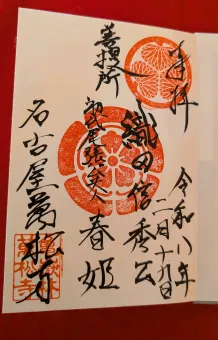 奉拝
令和八年
二月十九日
織田信秀公
菩提所
初代尾張夫人
春姫
名古屋萬松寺
萬松寺